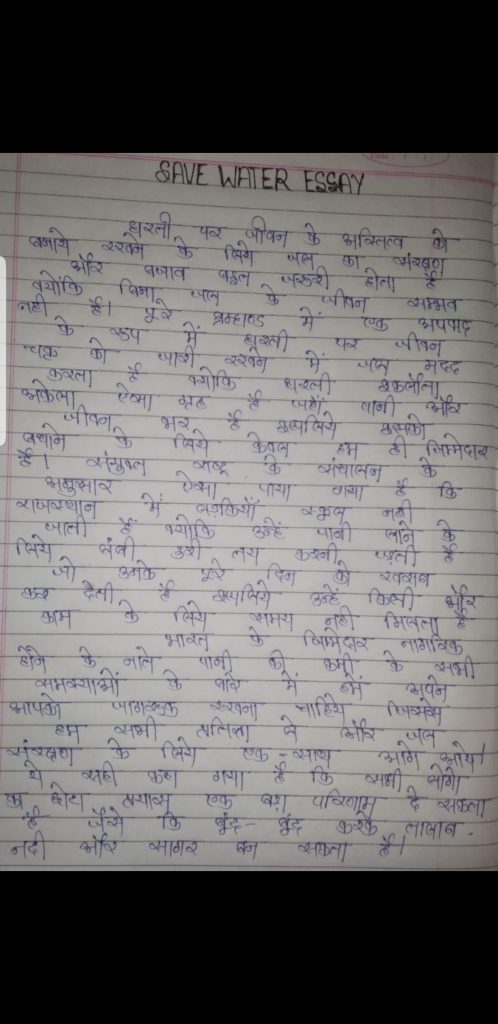 SAVE WATER ESSAY
धरती पर जीवन के अस्तित्व को
बनाये रखने के लिये जल का संरक्षण
और बचाव बहुत जरूरी होता है
क्योंकि बिना जल के जीवन सम्भव
नही है। पूरे ब्रम्हाण्ड में एक अपवाद
के रूप में धरती पर जीवन
चक्र को जारी रखने में जल मदद
करता है क्योकि धरती इकलौता
अकेला ऐसा ग्रह है जहाँ पानी और
जीवन है इसलिये
बचाने के लिये केवल हम ही जिम्मेदार
है। संयुक्त राष्ट्र के संचालन के
अनुसार ऐसा पाया गया है कि
राजस्थान में लड़कियाँ स्कूल नही
जाती हैं क्योकि उन्हें पानी लाने के
लिये लंबी दूरी तय करनी पड़ती है
जो उनके पूरे दिन को खराब
कर देती है इसलिये उन्हें किसी और
काम के लिये समय नही मिलता है
भारत के जिम्मेदार नागरिक
होने के नाते पानी की कमी के सभी
समस्याओं के बारे में हमें अपने
आपको जागरूक रखना चाहिये जिससे
हम सभी प्रतिज्ञा ले और जल
संरक्षण के लिये एक-साथ आगे आये।
ये सही कहा गया है कि सभी लोगो
का छोटा प्रयास एक बड़ा परिणाम दे सकता
है जैसे कि बूंद-बूंद करके तालाब,
नदी और सागर बन सकता है।